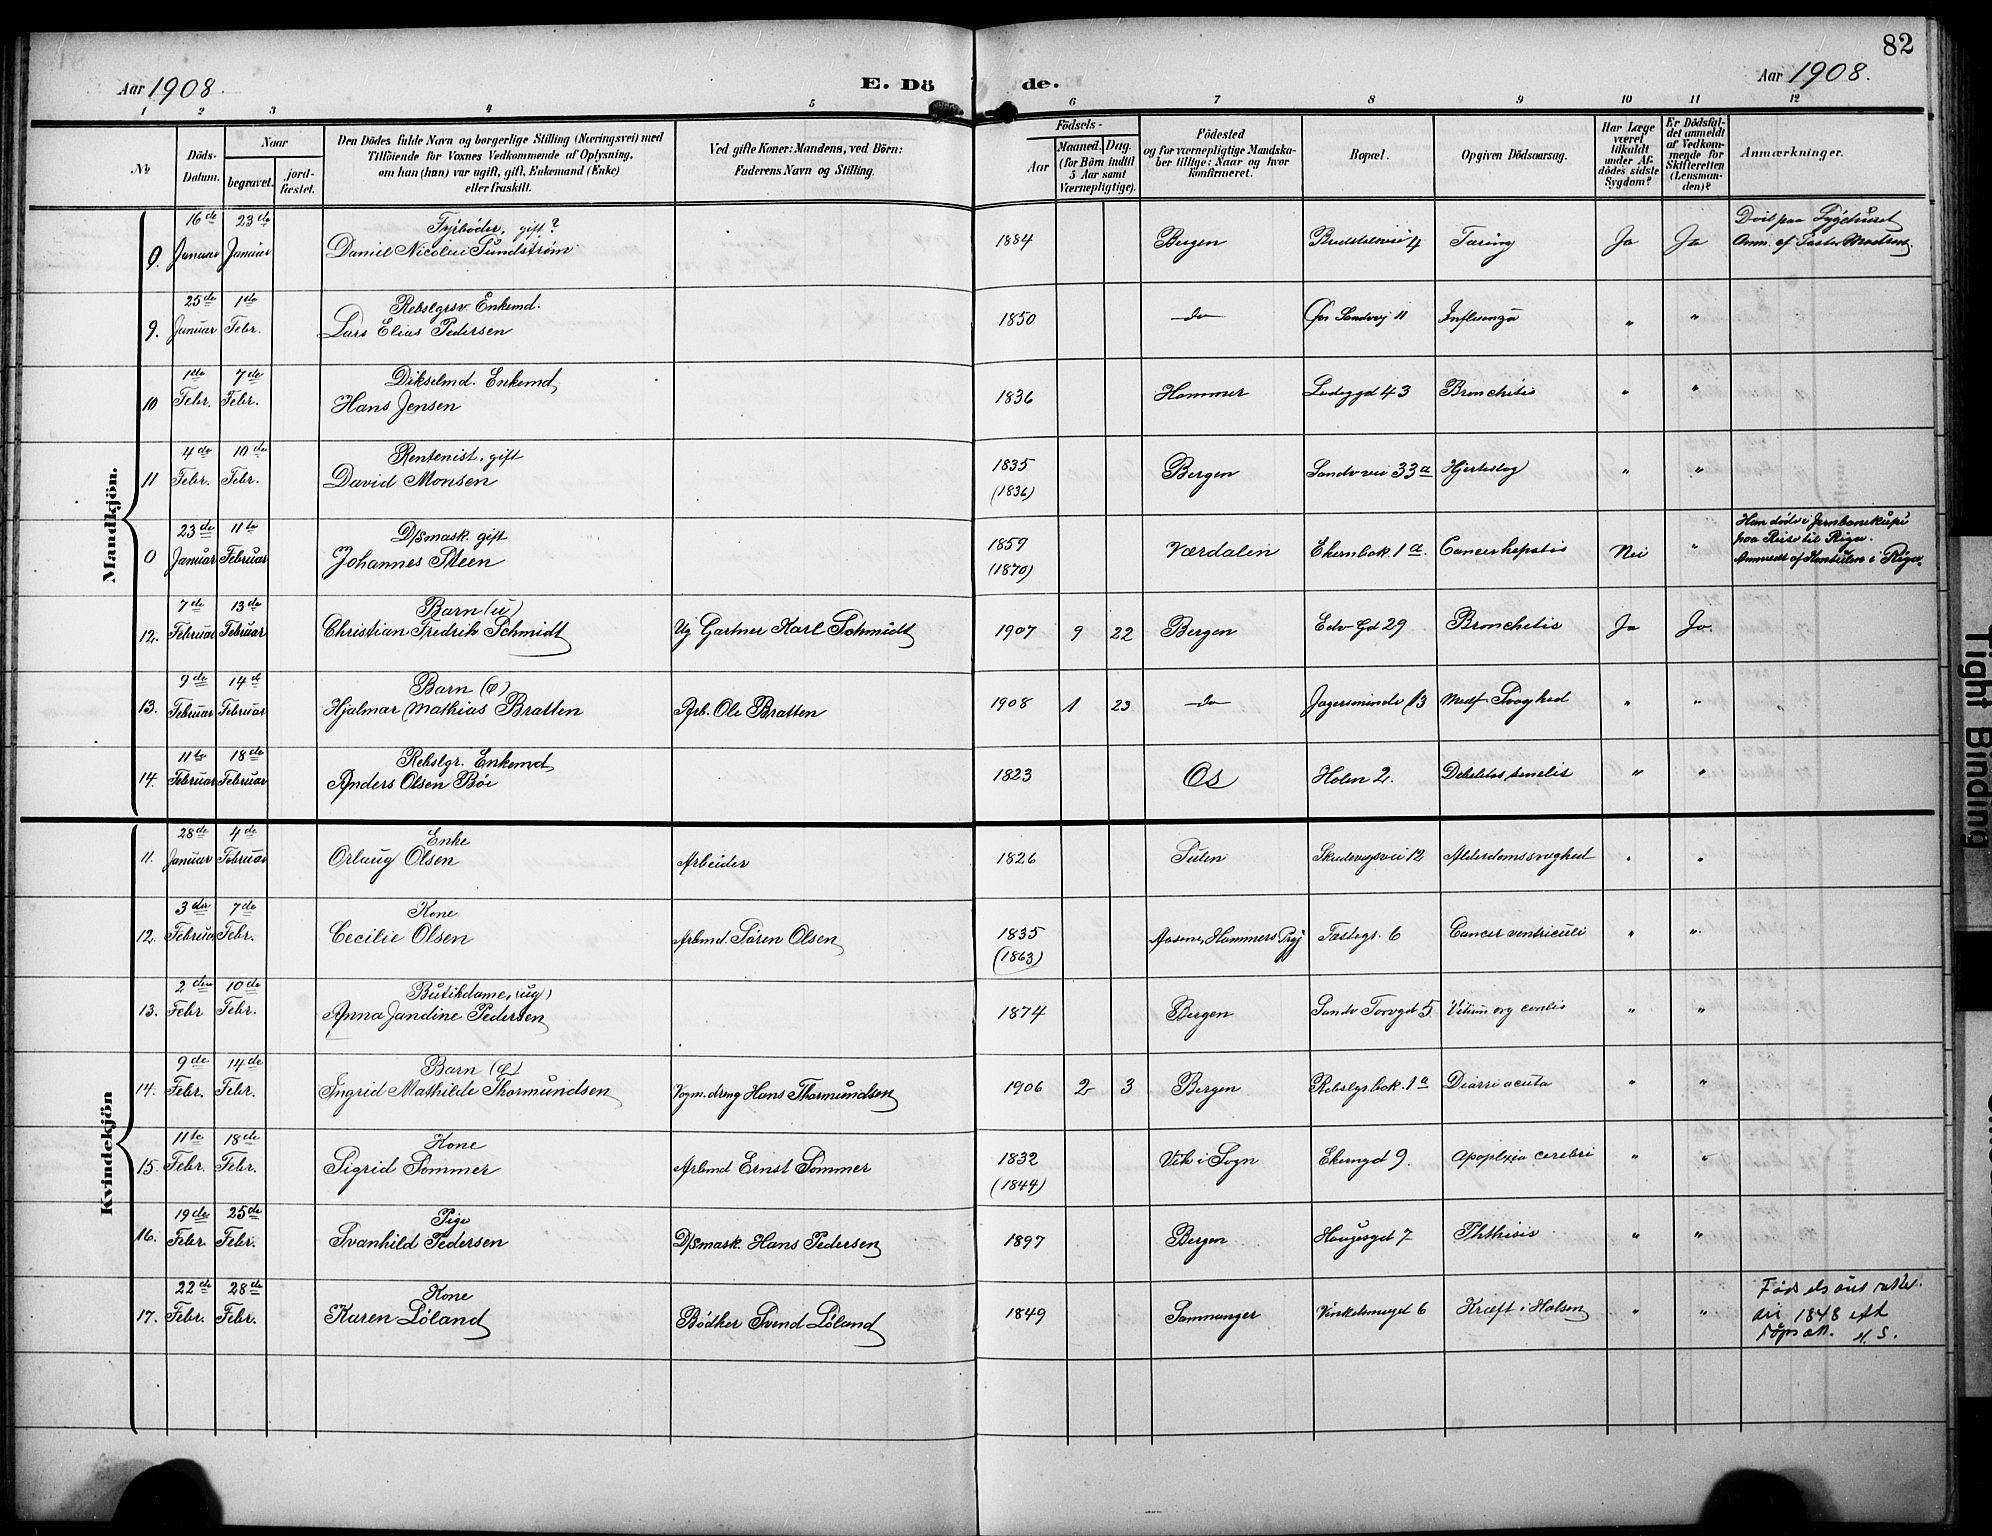 82
Aar 1908.
E. Dö de.
Aar 1908.
1 2 3 4 5 6 7 8 9 10 11 12
No
Döds-Datum.
Naar
begravet.
jord-fæstet.
Den Dödes fulde Navn og borgerlige Stilling (Næringsvei) med
Tilföiende for Voxnes Vedkommende af Oplysning,
om han (hun) var ugift, gift, Enkemand (Enke)
eller fraskilt.
Ved gifte Koner: Mandens, ved Börn:
Faderens Navn og Stilling.
Födsels-
Aar
Maaned. Dag.
(for Börn indtil
5 Aar samt
Værnepligtige).
Födested
og for værnepligtige Mandska-
ber tillige: Naar og hvor
konfirmeret.
Bopæl.
Opgiven Dödsaarsag.
Har Læge
været
tilkaldt
under Af-
dödes sidste
Sygdom?
Er Dödsfal-
det anmeldt
af Vedkom-
mende for
Skifteretten
(Lensman-
den)?
Anmærkninger.
Mandkjön.
16de 23de Fyrböder, gift?
0. Januar Januar Daniel Nicolai Sundström 1884 Bergen 4 Tæring Ja Ja
25de 1ste Rebslgrsv. Enkemd.
9. Januar Febr. Lars Elias Pedersen 1850 do Sandvej 11 Influenza " "
1ste 7de Enkemd.
10 Febr. Febr. Hans Jensen 1836 Hammer Ladeggd 43 Bronchitis " "
4de 10de Rentenist, gift
11 Febr. Febr. David Monsen 1835 (1836) Bergen Sandvvei 33a Hjerteslag " "
23de 11te D/Smask. gift
0 Januar Februar Johannes Steen 1859 (1870) Værdalen 1a. Cancer hepatis Nei "
Han døde i Jernbanekupé
paa Reise til Riga.
Anmeldt af Konsulen i Riga.
7de 13de Barn (u)
12. Februar Februar Christian Fredrik Schmidt Ug Gartner Karl Schmidt 1907 9 22 Bergen Edv Gd 29 Bronchitis Ja Ja.
9de 14de Barn (e)
13. Februar Februar Hjalmar Mathias Bratten Arb. Ole Bratten 1908 1 23 do Jægersminde 13 Medf Svaghed " "
11te 18de Rebslgr. Enkemd.
14. Februar Februar Anders Olsen Böe 1823 Os Holen 2. Debilitas senilis " "
Kvindekjön
28de 4de Enke
11. Januar Februar Orlaug Olsen Arbeider 1826 Sulen Skudevigsvei 12 Alderdomssvaghed " "
3die 7de Kone
12. Februar Febr. Cecilie Olsen Arbmd. Sören Olsen 1835 (1863) Hammers Prgj 6 Cancer ventriculi " "
2den 10de Butikdame, (ug)
13. Febr Febr. Anna Jandine Pedersen 1874 Bergen Sandv Torvgd 5 Vitium org cordis " "
9de 14de Barn (e)
14. Febr. Febr. Ingrid Mathilde Thormundsen Vogm.dreng Hans Thormundsen 1906 2 3 Bergen Rebslgrbak. 1a Diarre acuta " "
11te 18de Kone
15. Febr. Febr. Sigrid Sommer Arbmd Ernst Sommer 1832 (1844) Vik i Sogn Ekemgd 9. Apoplexia cerebri " "
19de 25de Pige
16. Febr. Febr. Svanhild Pedersen D/Smask. Hans Pedersen 1897 Bergen Haugesgd 7 Phthisis " "
22de 28de Kone
17. Febr. Febr. Karen Löland Bödker Svend Löland 1849 Sammanger 6 Kræft i Halsen " "
1848
H. S.
Tight Binding